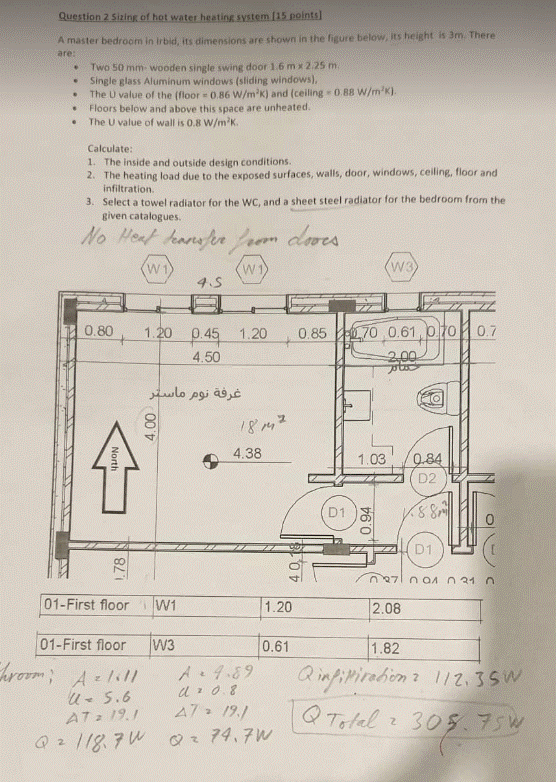 Question 2 Sizing of hot water heating system [15 points]
A master bedroom in Irbid, its dimensions are shown in the figure below, its height is 3m. There
are:
• Two 50 mm- wooden single swing door 1.6 m x 2.25 m.
• Single glass Aluminum windows (sliding windows),
• The U value of the (floor = 0.86 W/m²K) and (ceiling = 0.88 W/m²K).
• Floors below and above this space are unheated.
• The U value of wall is 0.8 W/m²K.
Calculate:
1. The inside and outside design conditions.
2. The heating load due to the exposed surfaces, walls, door, windows, ceiling, floor and
infiltration.
3. Select a towel radiator for the WC, and a sheet steel radiator for the bedroom from the
given catalogues.
No Heat transfer from doors
W1 W1 W3
4.5
0.80 1.20 0.45 1.20 0.85 0.70 0.61 0.70 0.7
4.50 2.00
حمام
غرفة نوم ماستر
4.00
18 m²
North
4.38
1.03 0.84
D2
D1 0.94 .88m²
D1
.78
01-First floor W1 1.20 2.08
01-First floor W3 0.61 1.82
hroom; A = 1.11 A = 9.89 Q infiltiration = 112.35W
u = 5.6 u = 0.8
ΔT = 19.1 ΔT = 19.1 Q Total = 305.75W
Q = 118.7W Q = 74.7W